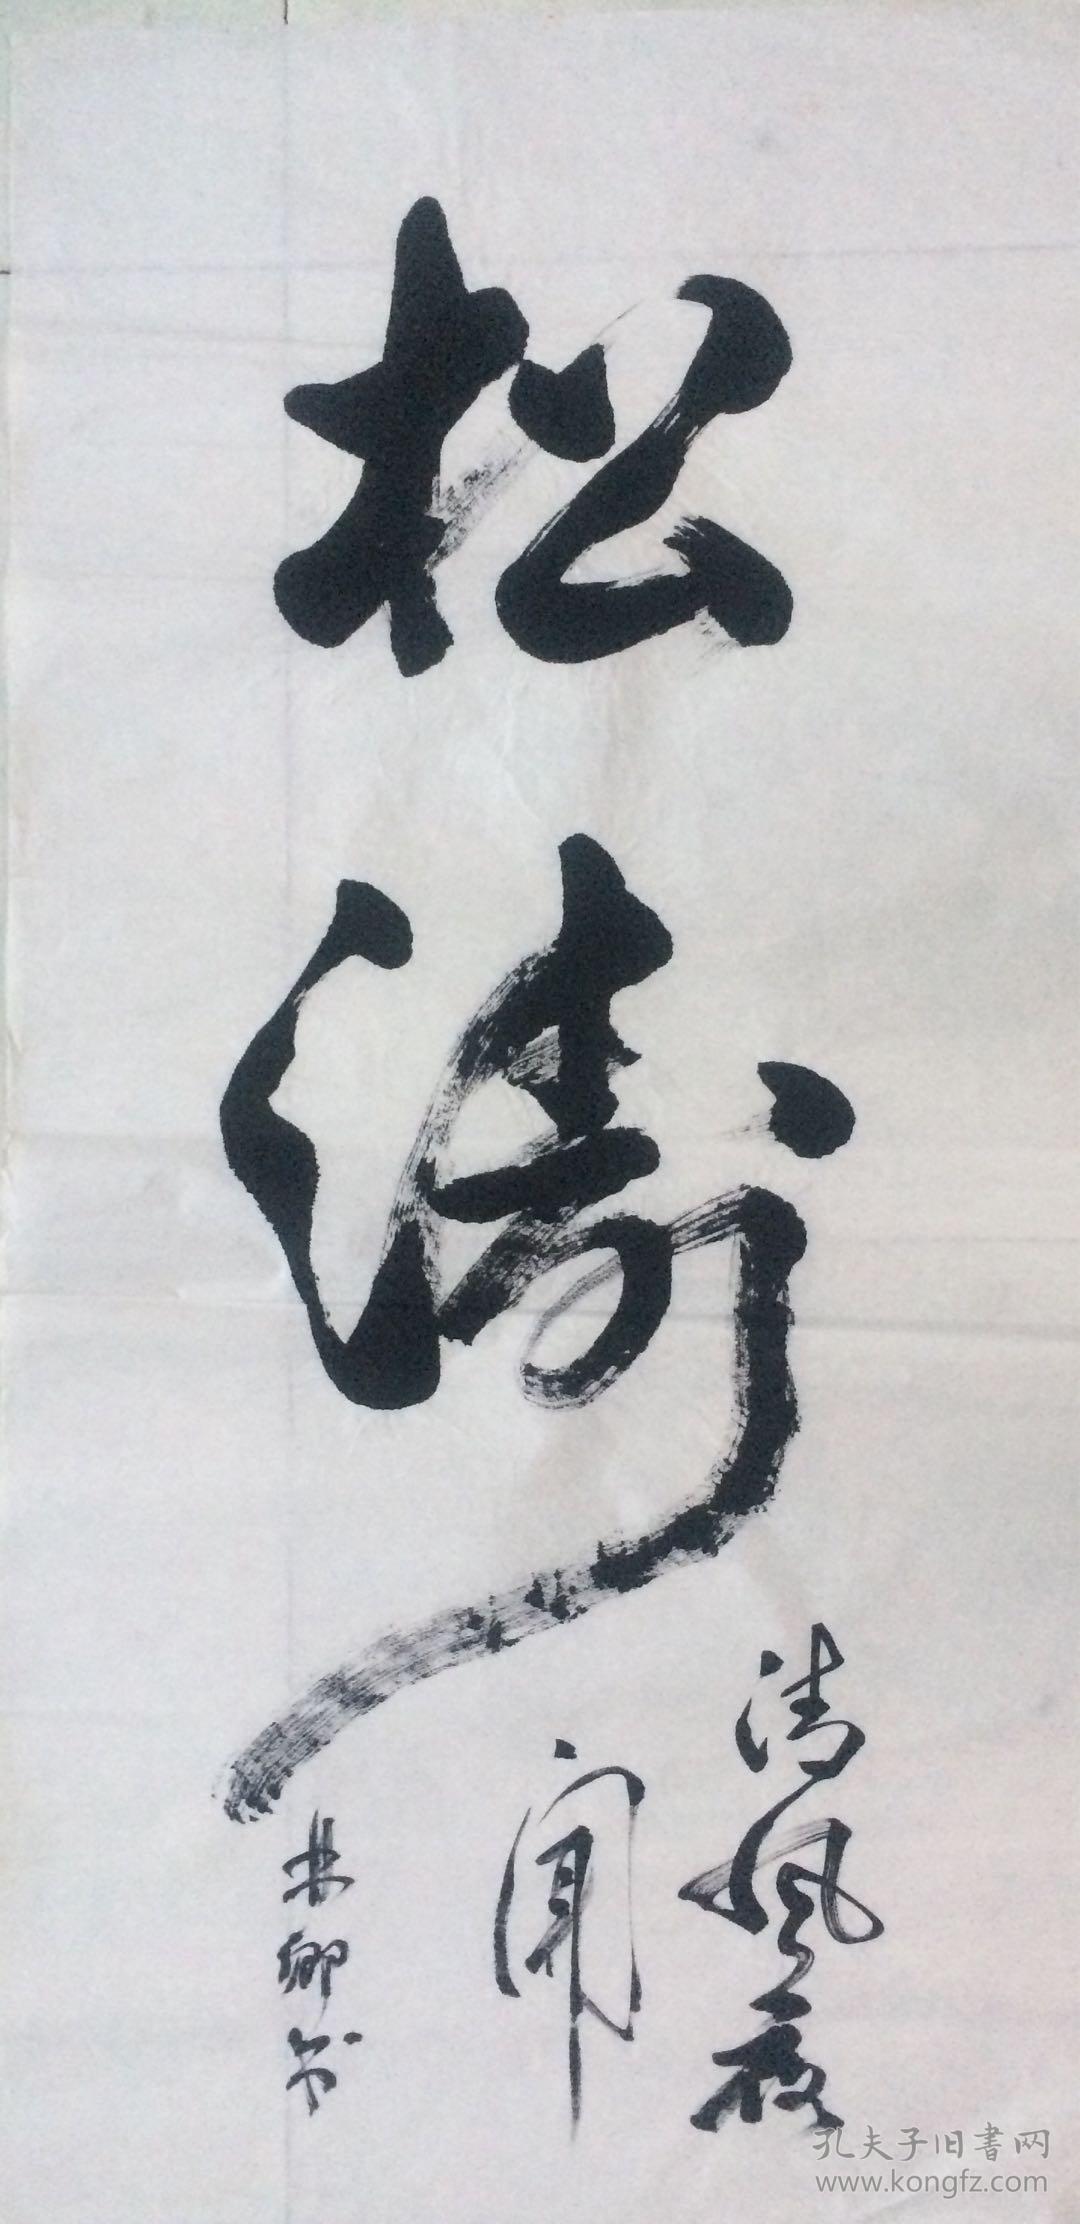 松涛
清风夜
闻
林乡书
孔夫子旧书网
www.kongfz.com